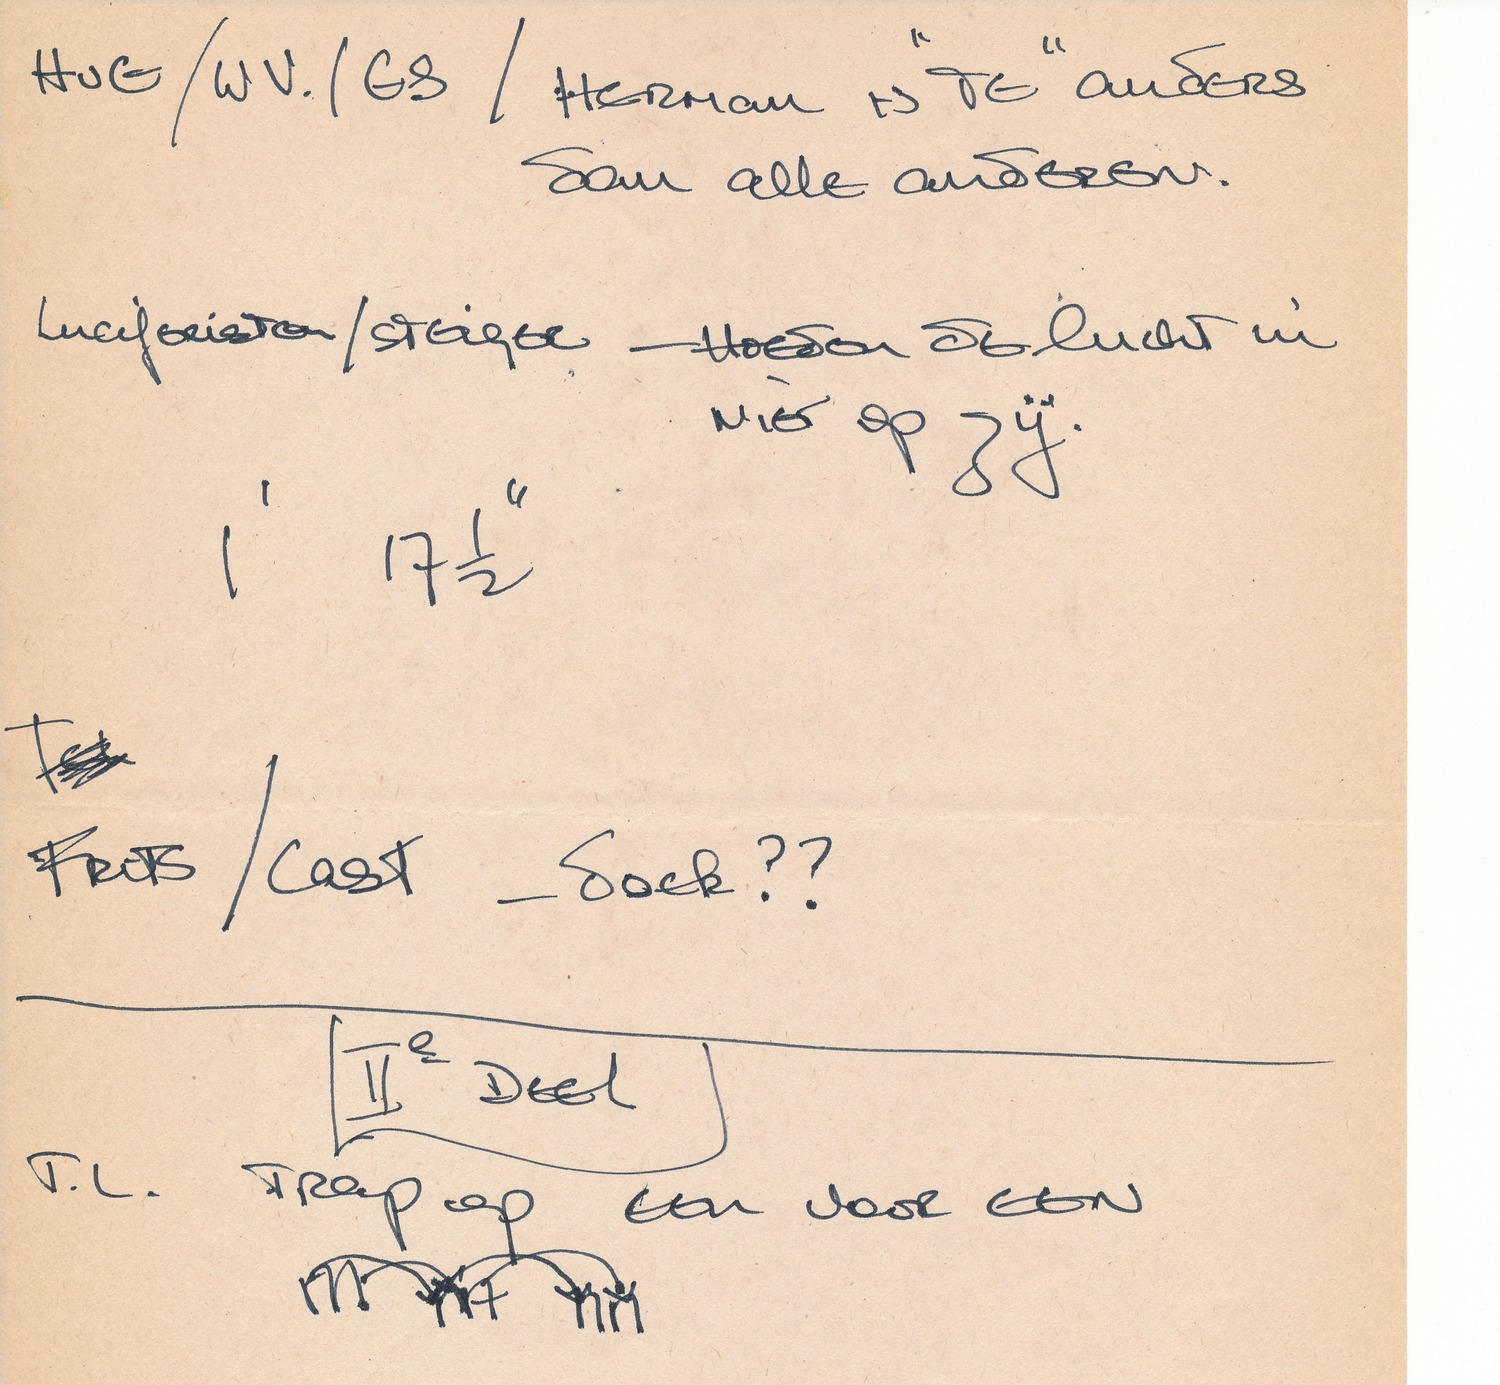 HUG / W V. / GS / HERMAN IS "TE" anders
dan alle anderen.
Luciferisten / steiger – Hoeden de lucht in
niet op zÿ.
1' 17 ½"
FRITS / Cast – doek??
IIe DEEL
T.L. TRap op een voor een